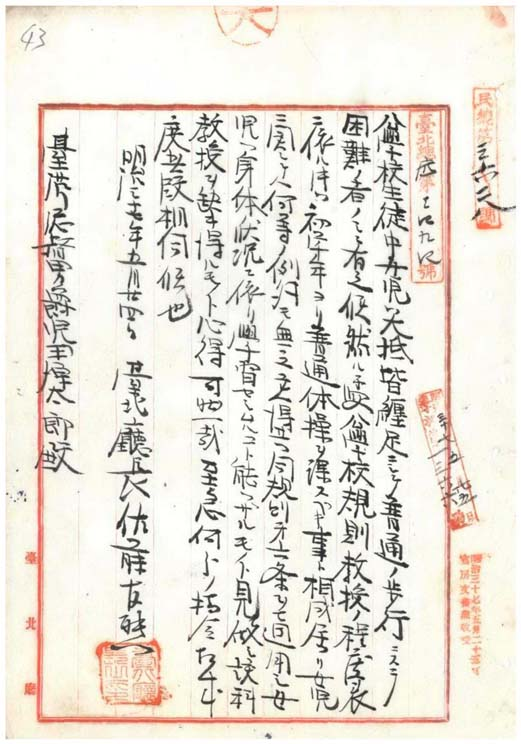 43
民總第三六二八號
臺北總
號
公學校生徒中女児ハ大抵皆纏足ニシテ普通ノ歩行ニスラ
困難ノ者ノミニ有之候然ルニ公學校規則教授ノ程度表
依レハ初学年ヨリ普通体操ヲ課スヘキ事ニ相成居リ女児
ニ関シテハ何等ノ例外モ無之同規則第六条ヲ適用シ女
児ノ身体ノ状況ニ依リ學習セシムルコト能ハザルモノト見做シ該科
教授ヲ缺キ得ルモノト心得可然哉至急何分ノ指令相成
度此段相伺候也
明治三十七年五月廿四日 臺北廳長佐藤友熊
臺灣總督男爵児玉源太郎殿
明治三十七年五月二十五日
官房文書課收受
臺北廳